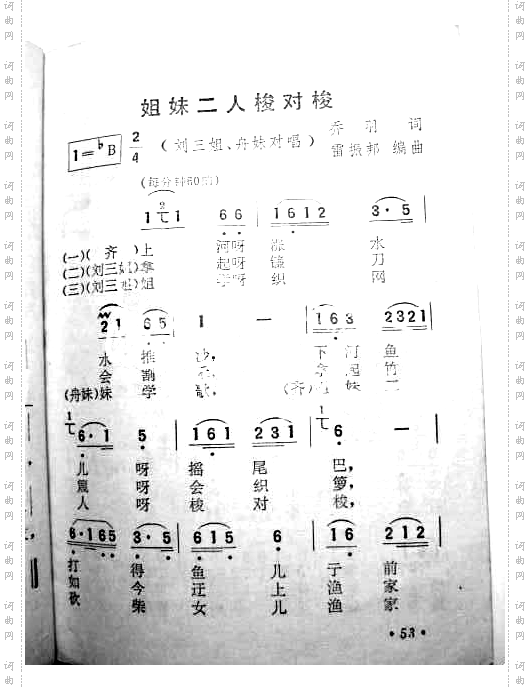 姐妹二人梭对梭
(刘三姐、舟妹对唱)
乔羽 词
雷振邦 编曲
1=♭B 2/4
(每分钟60拍)
1 1 6 6 | 1 6 1 2 3·5 |
(一)(齐)上 河呀 水
(二)(刘三姐)拿 起呀 刀
(三)(刘三姐)姐 呀 织 网
2 1 6 5 | 1 — | 1 6 3 2321 |
水 推 沙, 下 河 鱼
会 起 竹
(舟妹)妹 学 (齐) 妹 二
6·1 5 | 1 6 1 2 3 1 | 6 — |
儿 呀 摇 尾 巴,
篾 呀 会 织 箩,
人 呀 梭 对 梭,
6·165 3·5 | 6 1 5 6 | 1 6 2 1 2 |
打 得 鱼 儿 于 前
如 今 迂 上 渔 家
砍 柴 女 儿 渔 家
·53·
词曲网
词曲网
词曲网
词曲网
词曲网
词曲网
词曲网
词曲网
词曲网
词曲网
词曲网
词曲网
词曲网
词曲网